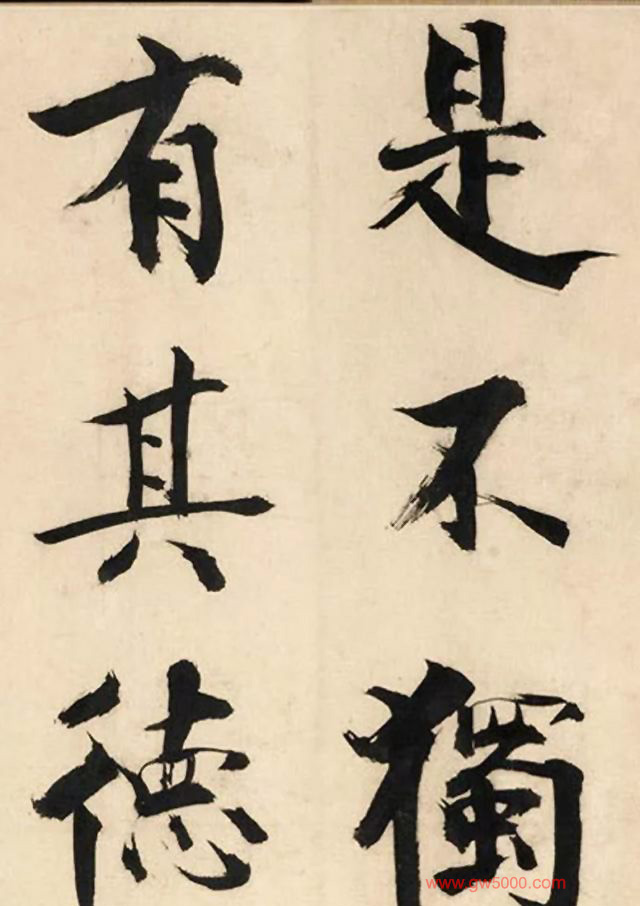 是不獨
有其德
www.gw5000.com